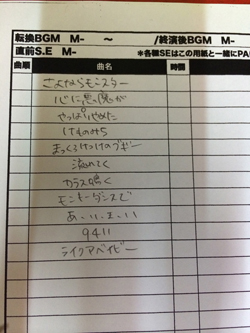 転換BGM M- 〜 /終演後BGM M-
直前S.E M- *各種SEはこの用紙と一緒にPA
曲順 曲名 時間
さよならモンスター
心に悪魔が
やっぱりやめた
けものみち
まっくろけっけのブギー
決めてく
カラス鳴く
モンキーダンスで
あ、い、え、い、い
9411
ライクアベイビー